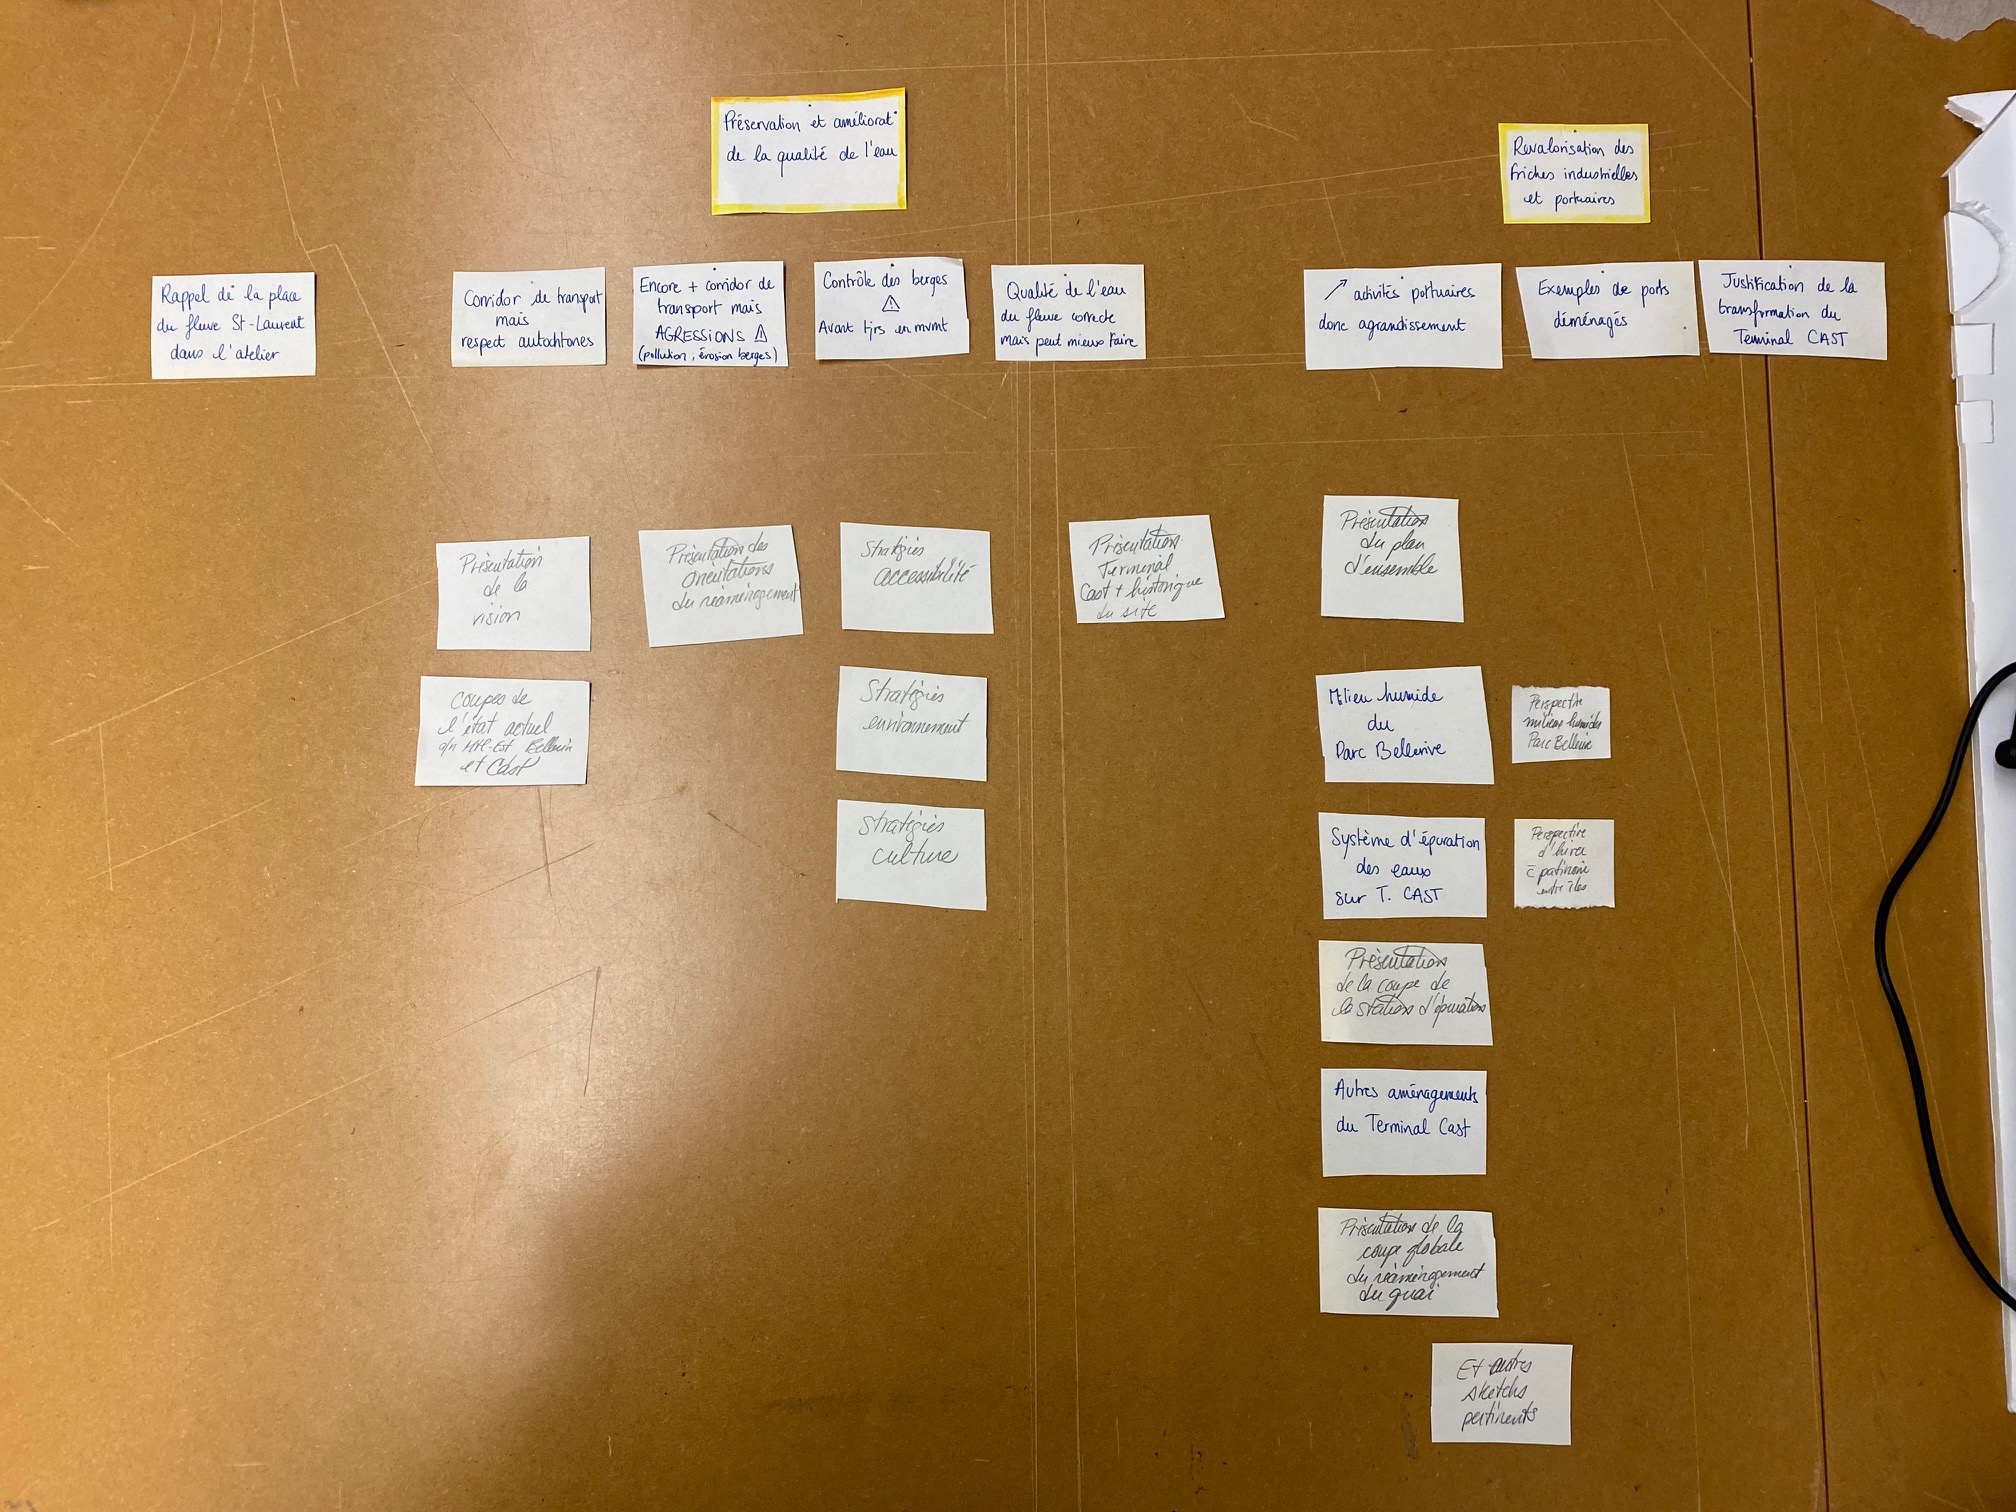 Préservation et améliorat°
de la qualité de l'eau
Revalorisation des
friches industrielles
et portuaires
Rappel de la place
du fleuve St-Laurent
dans l'atelier
Corridor de transport
mais
respect autochtones
Encore + corridor de
transport mais
AGRESSIONS ⚠
(pollution, érosion berges)
Contrôle des berges
⚠
Avant tjrs en mvmt
Qualité de l'eau
du fleuve correcte
mais peut mieux faire
↗ activités portuaires
donc agrandissement
Exemples de ports
déménagés
Justification de la
transformation du
Terminal CAST
Présentation
de la
vision
Présentation des
orientations
du réaménagement
Stratégies
accessibilité
Présentation
Terminal
Cast + historique
du site
Présentation
du plan
d'ensemble
Coupes de
l'état actuel
d'n MTL-Est Bellerive
et Cast
Stratégies
environnement
Milieu humide
du
Parc Bellerive
Perspective
milieux humides
Parc Bellerive
Stratégies
culture
Système d'épuration
des eaux
sur T. CAST
Perspective
d'hiver
c̄ patinoire
entre îles
Présentation
de la coupe de
la station d'épuration
Autres aménagements
du Terminal Cast
Présentation de la
coupe globale
du réaménagement
du quai
Et autres
sketchs
pertinents